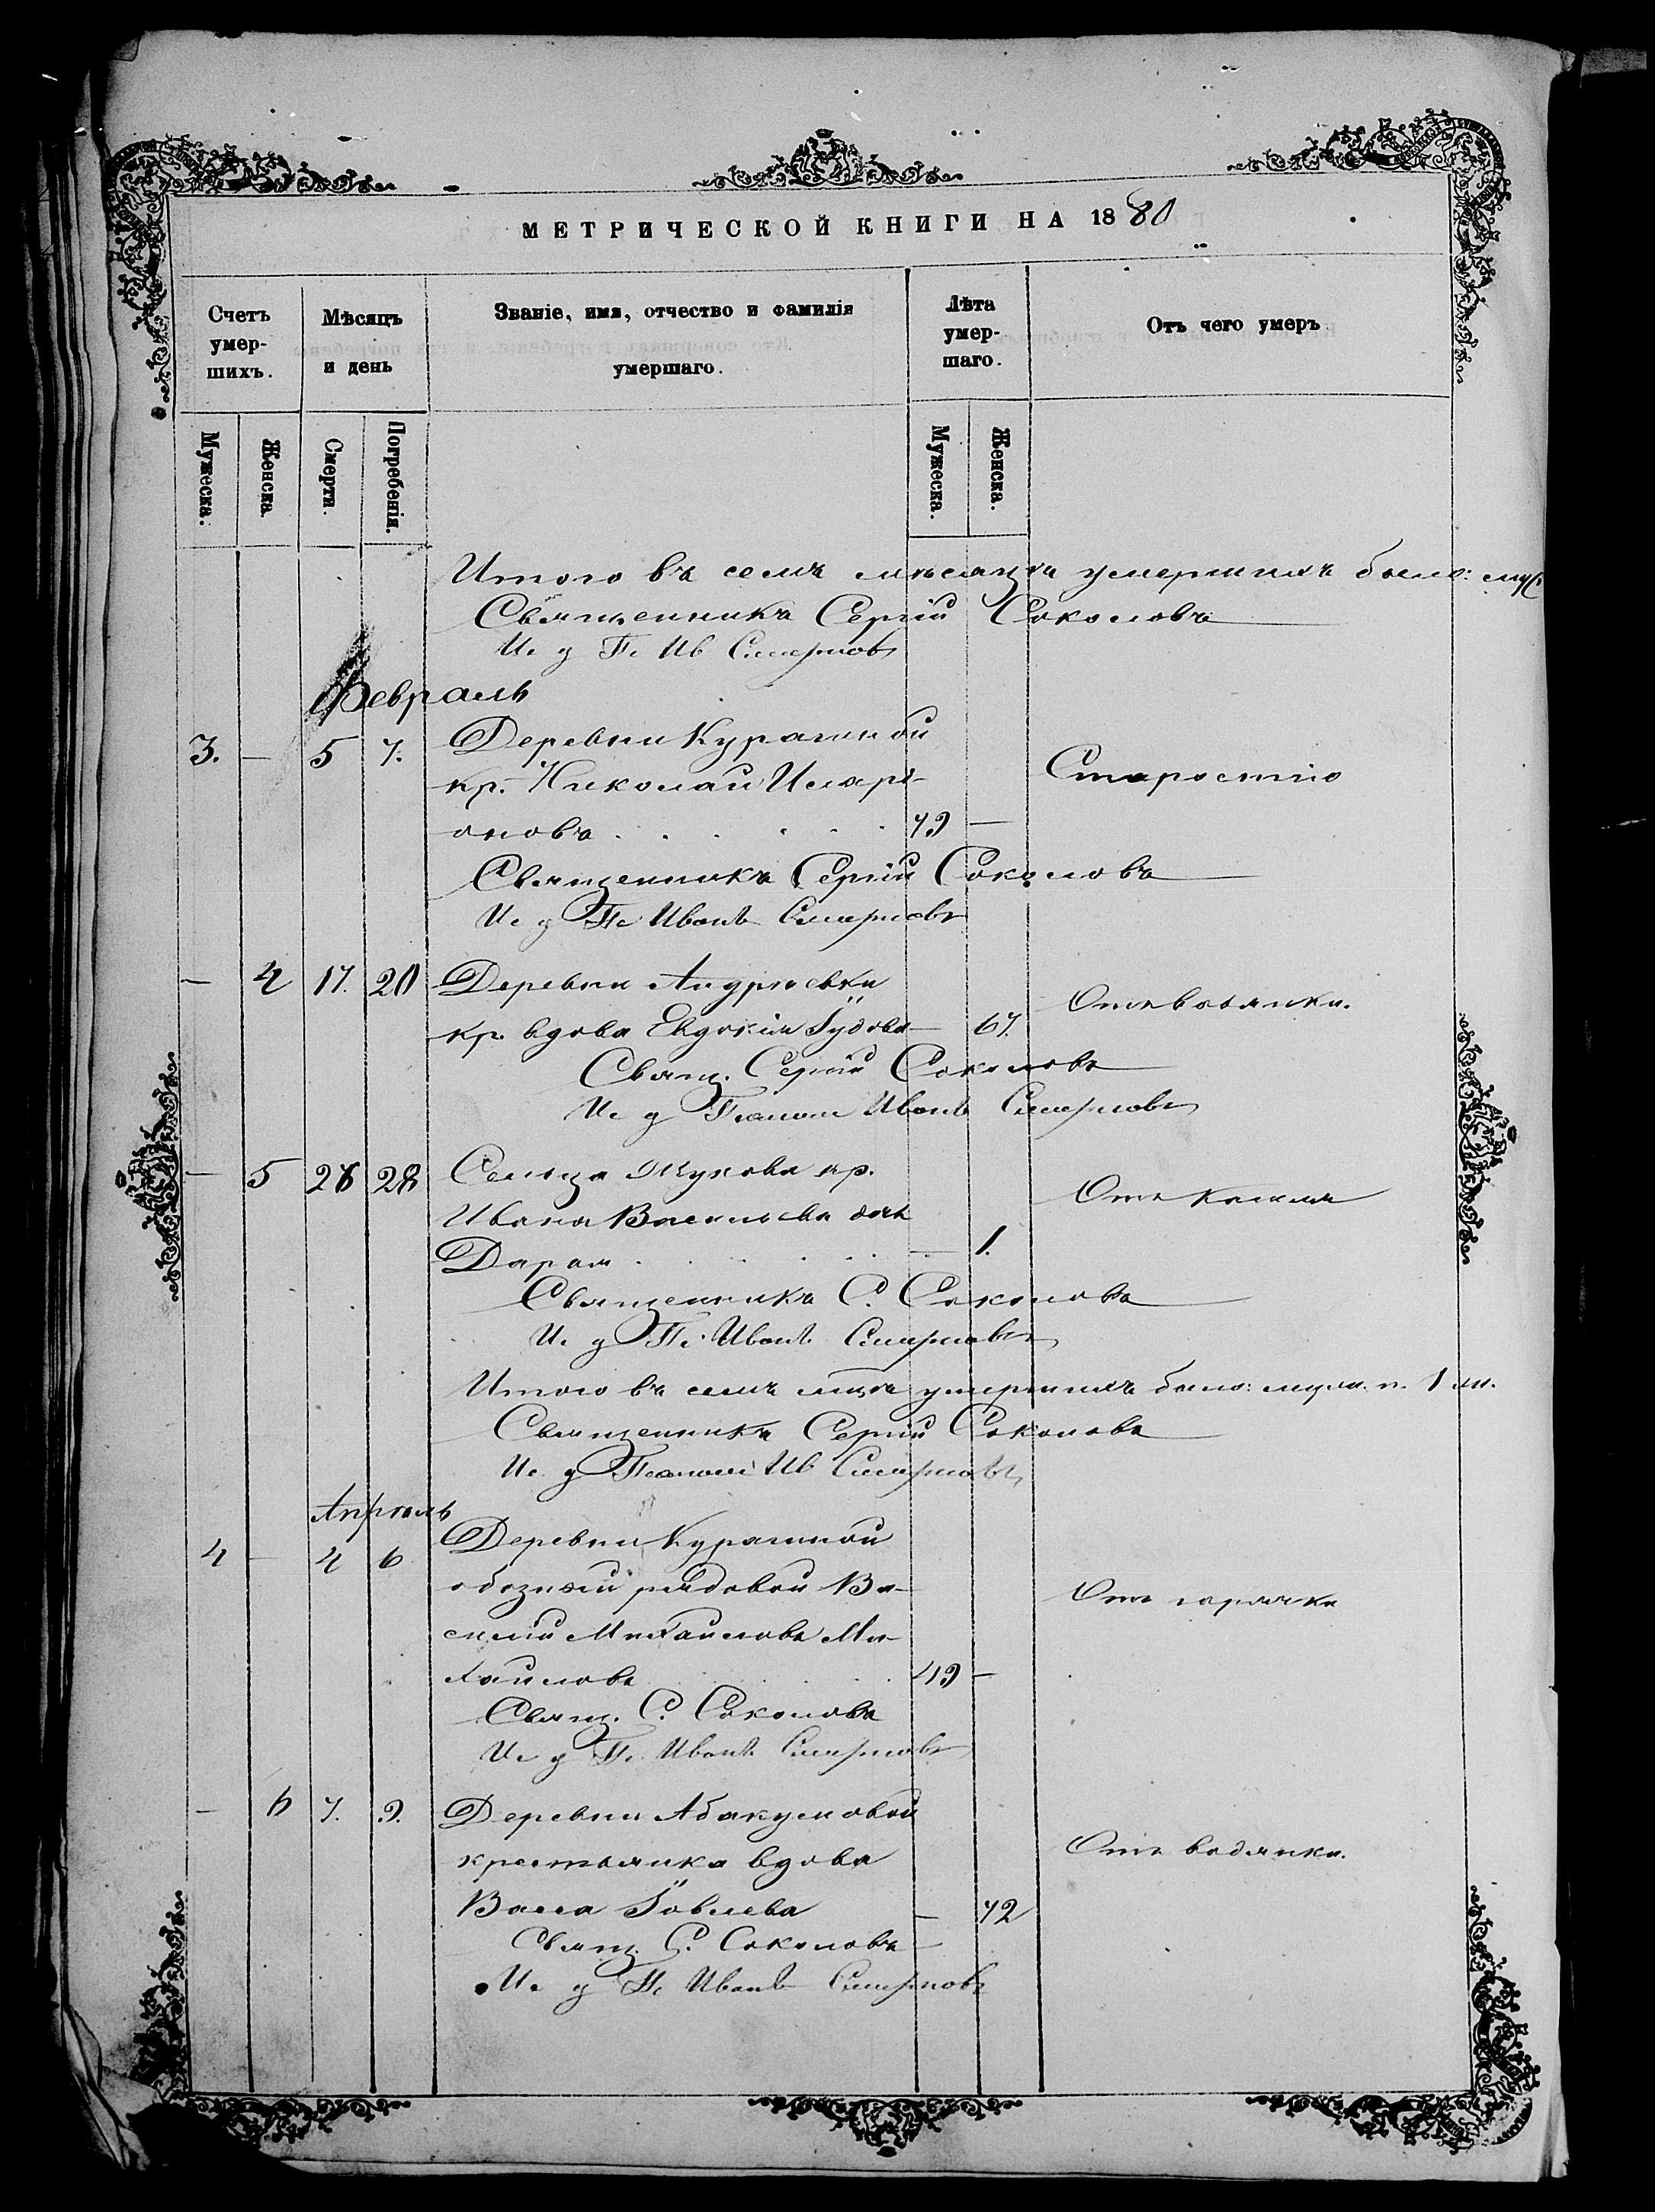 МЕТРИЧЕСКОЙ КНИГИ НА 1880
Счетъ умер-шихъ.
Мѣсяцъ и день
Званіе, имя, отчество и фамилія умершаго.
Лѣта умер-шаго.
Отъ чего умеръ
Мужеска.
Женска.
Смерти.
Погребенія.
Мужеска.
Женска.
Итого въ семъ мѣсяцѣ умершихъ было: муж
Священникъ Сергій Соколовъ
Ис д Пс Ив Смирновъ
Февраль
3. — 5 7. Деревни Курагиной
кр. Николай Илларі- Старостію
оновъ . . . . . . 79 —
Священникъ Сергій Соколовъ
Ис д Пс Иванъ Смирновъ
— 4 17. 20 Деревни Андреевки
кр. вдова Евдокія — 67. Отъ водянки.
Свящ. Сергій Соколовъ
Ис д Псалом Иванъ Смирновъ
— 5 26 28 Сельца Жукова кр.
Ивана Васильева дочь Отъ кашля
Дарья . . . . . — 1.
Священникъ С. Соколовъ
Ис д Пс Иванъ Смирновъ
Итого въ семъ мцѣ умершихъ было: муж. п. 1 жн.
Священникъ Сергій Соколовъ
Ис д Псалом Ив Смирновъ
Апрель
4 — 4 6 Деревни Курагиной
обозный рядовой Ва- Отъ горячки
силій Михайловъ Ми-
хайловъ . . . . . 49 —
Свящ. С. Соколовъ
Ис д Пс Иванъ Смирновъ
— 6 7. 9. Деревни Абакумовой
крестьянка вдова Отъ водянки.
Васса Іовлева — 72
Свящ. С. Соколовъ
Ис д Пс Иванъ Смирновъ